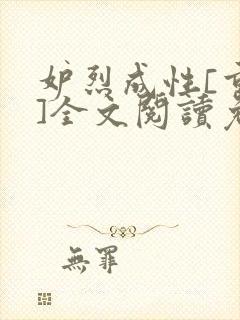 妒烈成性[重
]全文閱讀老
無罪